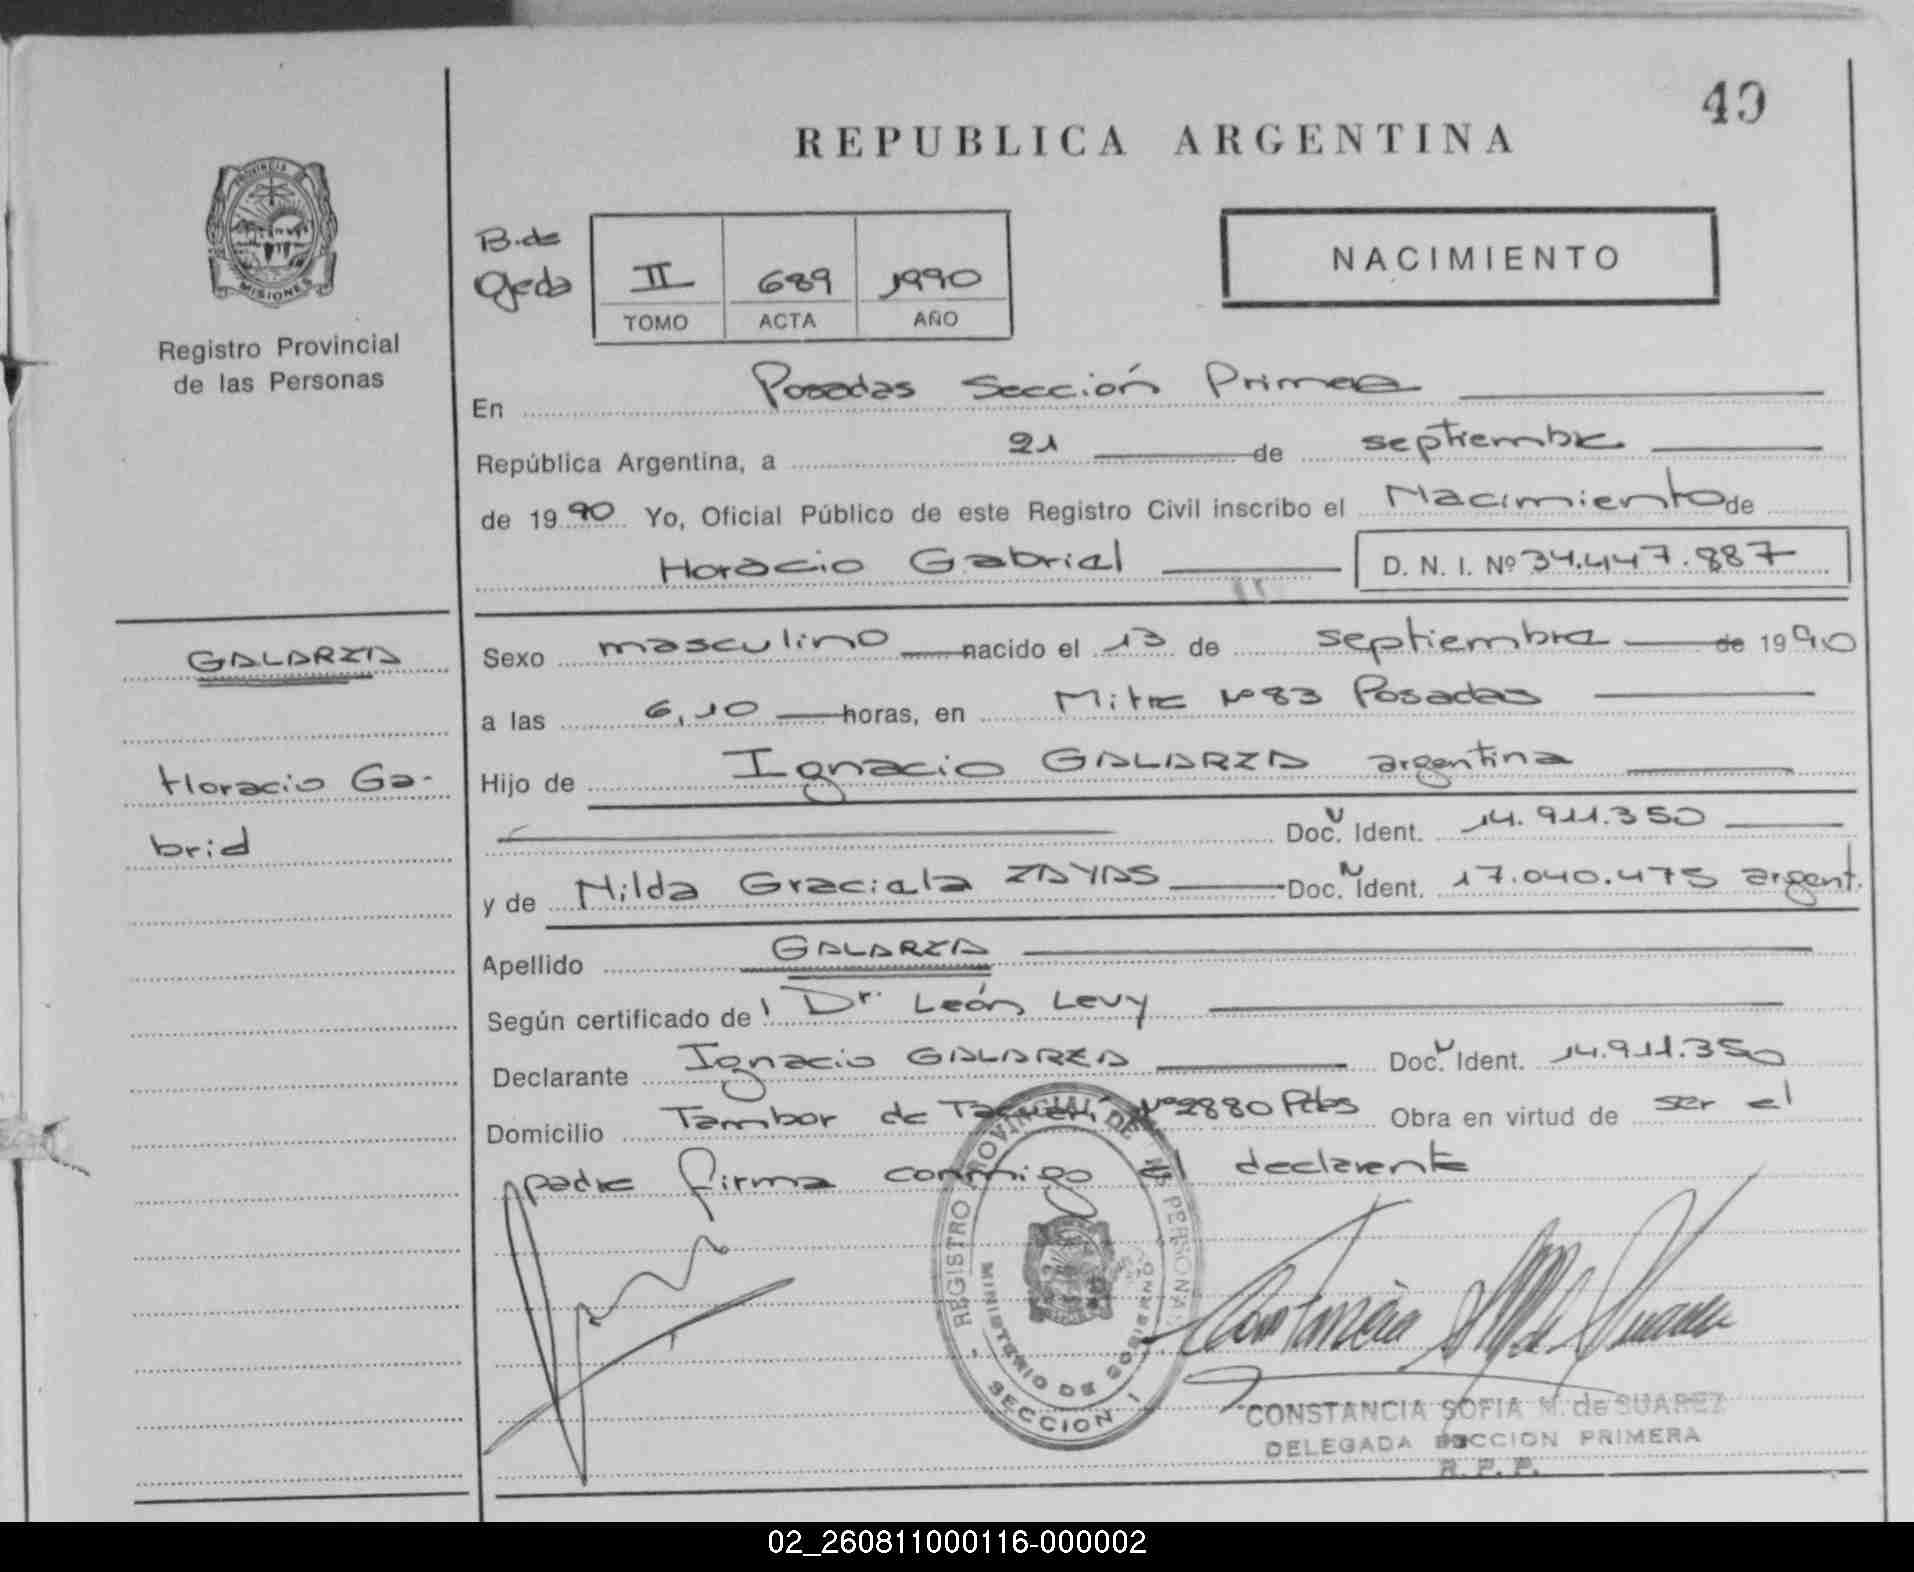 40
REPUBLICA ARGENTINA
PROVINCIA DE
MISIONES
Registro Provincial
de las Personas
B. de
Ojeda
II 689 1990
TOMO ACTA AÑO
NACIMIENTO
En Posadas Sección Primera
República Argentina, a 21 de septiembre
de 1990 Yo, Oficial Público de este Registro Civil inscribo el Nacimiento de
Horacio Gabriel D. N. I. Nº 34.447.887
GALARZA
Horacio Ga-
briel
Sexo masculino nacido el 13 de septiembre de 1990
a las 6,10 horas, en Mitre Nº 83 Posadas
Hijo de Ignacio GALARZA argentina
Doc. Ident. 14.911.350
y de Nilda Graciela ZAYAS Doc. Ident. 17.040.475 argent.
Apellido GALARZA
Según certificado de Dr. León Levy
Declarante Ignacio GALARZA Doc. Ident. 14.911.350
Domicilio Tambor de Tacuarí Nº 2880 Pdas Obra en virtud de ser el
padre firma conmigo el declarante
REGISTRO PROVINCIAL DE LAS PERSONAS
MINISTERIO DE GOBIERNO
SECCION I
Constancia M de Suarez
CONSTANCIA SOFIA M. de SUAREZ
DELEGADA SECCION PRIMERA
R. P. P.
02_260811000116-000002